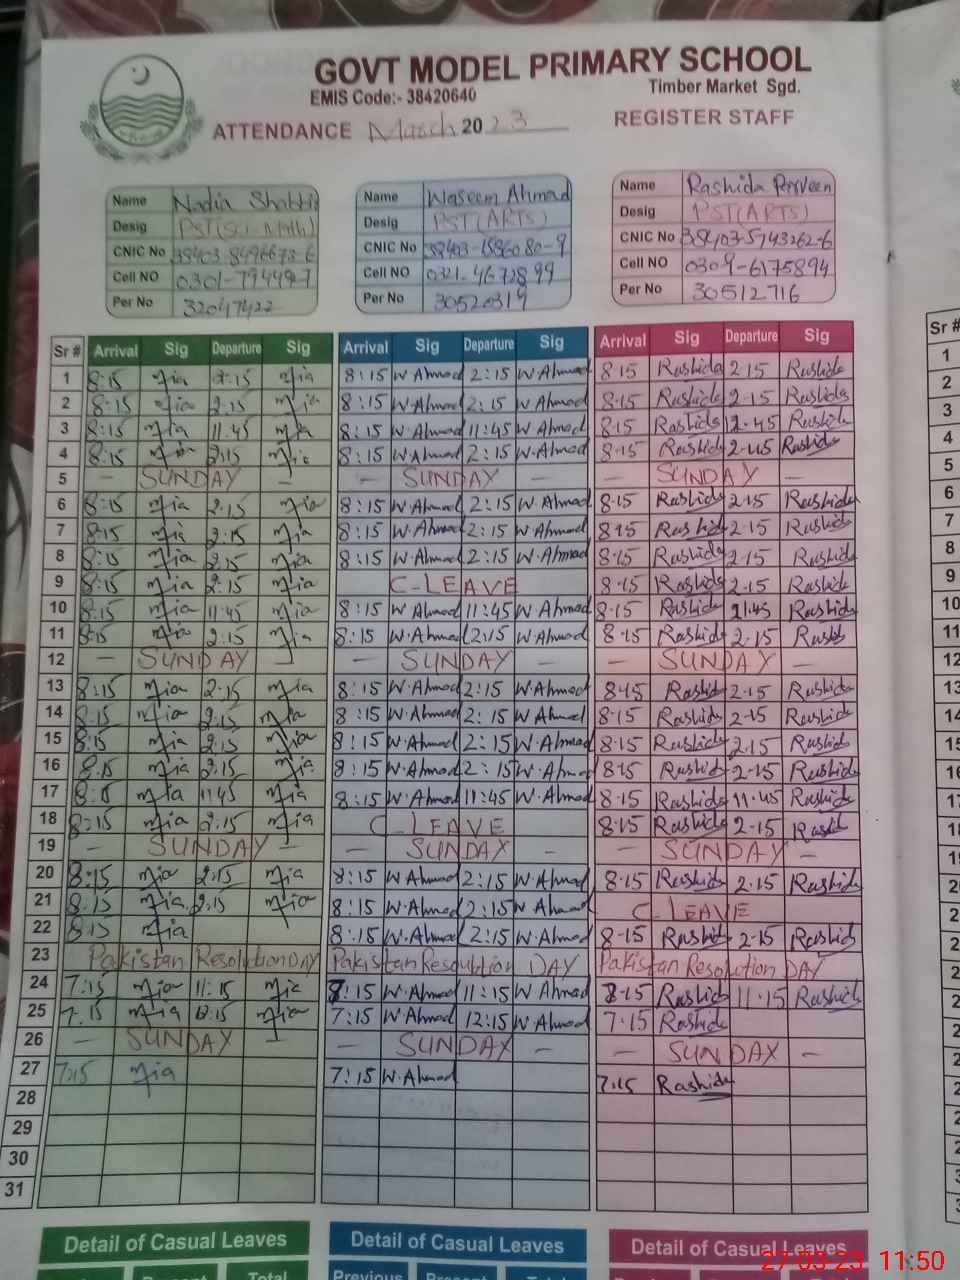 GOVT MODEL PRIMARY SCHOOL
EMIS Code:- 38420640 Timber Market Sgd.
ATTENDANCE March 2023 REGISTER STAFF
Name Nadia Shabbir Name Waseem Ahmad Name Rashida Perveen
Desig PST(Sci-Math) Desig PST(ARTS) Desig PST(ARTS)
CNIC No CNIC No 38403-1586080-9 CNIC No 38403-5743262-6
Cell NO 0301-7944987 Cell NO 0321-4672899 Cell NO 0309-6175894
Per No 32047422 Per No 30520319 Per No 30512716
Sr # Arrival Sig Departure Sig Arrival Sig Departure Sig Arrival Sig Departure Sig Sr #
1 8:15 Nia 2:15 Nia 8:15 W Ahmad 2:15 W Ahmad 8·15 Rashida 2·15 Rashida 1
2 8:15 Nia 2:15 Nia 8:15 W·Ahmad 2:15 W·Ahmad 8·15 Rashida 2·15 Rashida 2
3 8:15 Nia 11:45 Nia 8:15 W·Ahmad 11:45 W·Ahmad 8·15 Rashida 12·45 Rashida 3
4 8:15 Nia 2:15 Nia 8:15 W·Ahmad 2:15 W·Ahmad 8·15 Rashida 2·45 Rashida 4
5 – SUNDAY – – SUNDAY – – SUNDAY – 5
6 8:15 Nia 2:15 Nia 8:15 W·Ahmad 2:15 W Ahmad 8·15 Rashida 2·15 Rashida 6
7 8:15 Nia 2:15 Nia 8:15 W·Ahmad 2:15 W·Ahmad 8·15 Rashida 2·15 Rashida 7
8 8:15 Nia 2:15 Nia 8:15 W·Ahmad 2:15 W·Ahmad 8·15 Rashida 2·15 Rashida 8
9 8:15 Nia 2:15 Nia C-LEAVE 8·15 Rashida 2·15 Rashida 9
10 8:15 Nia 11:45 Nia 8:15 W Ahmad 11:45 W Ahmad 8·15 Rashida 11:45 Rashida 10
11 8:15 Nia 2:15 Nia 8:15 W·Ahmad 2:15 W Ahmad 8·15 Rashida 2·15 Rashid 11
12 – SUNDAY – – SUNDAY – – SUNDAY – 12
13 8:15 Nia 2:15 Nia 8:15 W·Ahmad 2:15 W·Ahmad 8·15 Rashid 2·15 Rashida 13
14 8:15 Nia 2:15 Nia 8:15 W·Ahmad 2:15 W Ahmad 8·15 Rashida 2·15 Rashida 14
15 8:15 Nia 2:15 Nia 8:15 W·Ahmad 2:15 W·Ahmad 8·15 Rashida 2·15 Rashida
16 8:15 Nia 2:15 Nia 8:15 W·Ahmad 2:15 W·Ahmad 8·15 Rashid 2·15 Rashida
17 8:15 Nia 11:45 Nia 8:15 W·Ahmad 11:45 W·Ahmad 8·15 Rashida 11·45 Rashida
18 8:15 Nia 2:15 Nia C-LEAVE 8·15 Rashida 2·15 Rashid
19 – SUNDAY – – SUNDAY – – SUNDAY –
20 8:15 Nia 2:15 Nia 8:15 W·Ahmad 2:15 W Ahmad 8·15 Rashida 2·15 Rashida
21 8:15 Nia 2:15 Nia 8:15 W·Ahmad 2:15 W Ahmad C-LEAVE
22 8:15 Nia 8:15 W·Ahmad 2:15 W·Ahmad 8·15 Rashid 2·15 Rashid
23 Pakistan Resolution DAY Pakistan Resolution DAY Pakistan Resolution DAY
24 7:15 Nia 11:15 Nia :15 W·Ahmad 11:15 W Ahmad 15 Rashid 11·15 Rashida
25 7:15 Nia 12:15 Nia 7:15 W·Ahmad 12:15 W·Ahmad 7·15 Rashida
26 – SUNDAY – SUNDAY – – SUNDAY –
27 7:15 Nia 7:15 W·Ahmad 7:15 Rashida
28
29
30
31
Detail of Casual Leaves Detail of Casual Leaves Detail of Casual Leaves
Present Total Previous Present Total
27-03-23 11:50